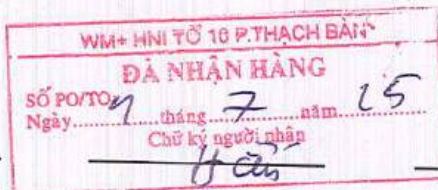 WM+ HNI TỔ 16 P.THẠCH BÀN
ĐÃ NHẬN HÀNG
SỐ PO/TO
Ngày.........tháng....7....năm....25
Chữ ký người nhận